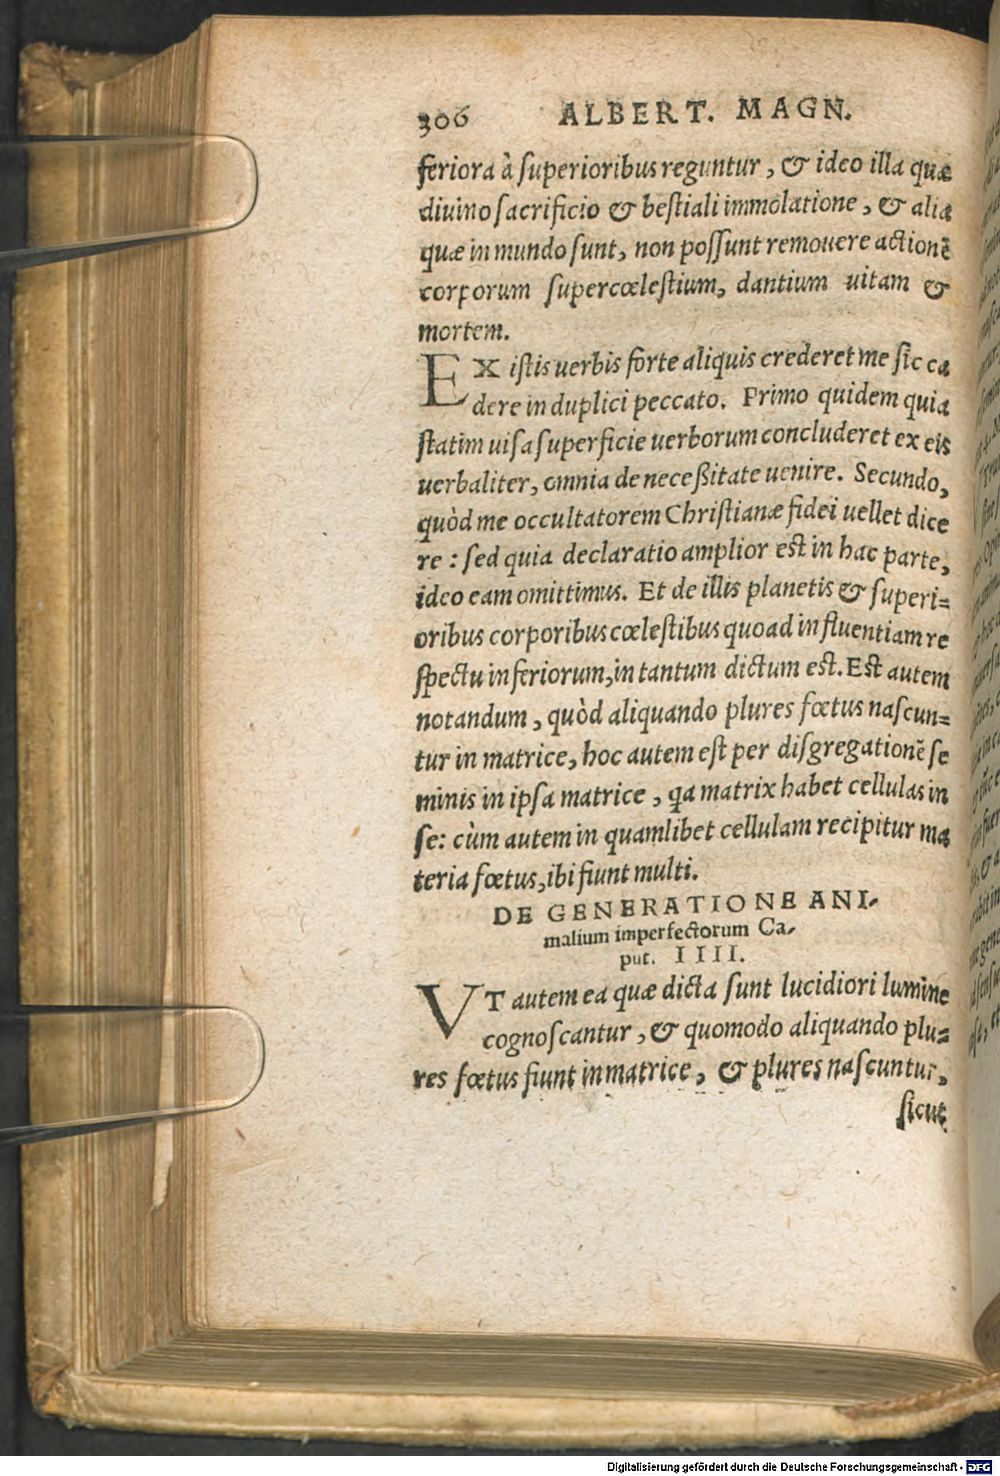 306 ALBERT. MAGN.
feriora à ſuperioribus reguntur, & ideo illa quæ
diuino ſacrificio & beſtiali immolatione, & alia
quæ in mundo ſunt, non poſſunt remouere actionẽ
corporum ſupercœleſtium, dantium uitam &
mortem.
EX iſtis uerbis forte aliquis crederet me ſic ca
dere in duplici peccato. Primo quidem quia
ſtatim uiſa ſuperficie uerborum concluderet ex eis
uerbaliter, omnia de neceßitate uenire. Secundo,
quòd me occultatorem Chriſtianæ fidei uellet dice
re: ſed quia declaratio amplior eſt in hac parte,
ideo eam omittimus. Et de illis planetis & ſuperi=
oribus corporibus cœleſtibus quoad influentiam re
ſpectu inferiorum, in tantum dictum eſt. Eſt autem
notandum, quòd aliquando plures fœtus naſcun=
tur in matrice, hoc autem eſt per diſgregationẽ ſe
minis in ipſa matrice, qa matrix habet cellulas in
ſe: cùm autem in quamlibet cellulam recipitur ma
teria fœtus, ibi fiunt multi.
DE GENERATIONE ANI-
malium imperfectorum Ca-
put. IIII.
VT autem ea quæ dicta ſunt lucidiori lumine
cognoſcantur, & quomodo aliquando plu=
res fœtus fiunt in matrice, & plures naſcuntur,
ſicut
Digitalisierung gefördert durch die Deutsche Forschungsgemeinschaft - DFG